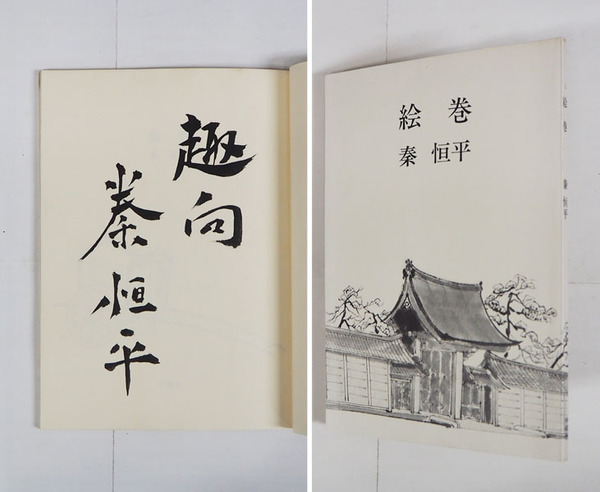 趣向
秦恒平
絵巻
秦恒平
絵巻
秦恒平